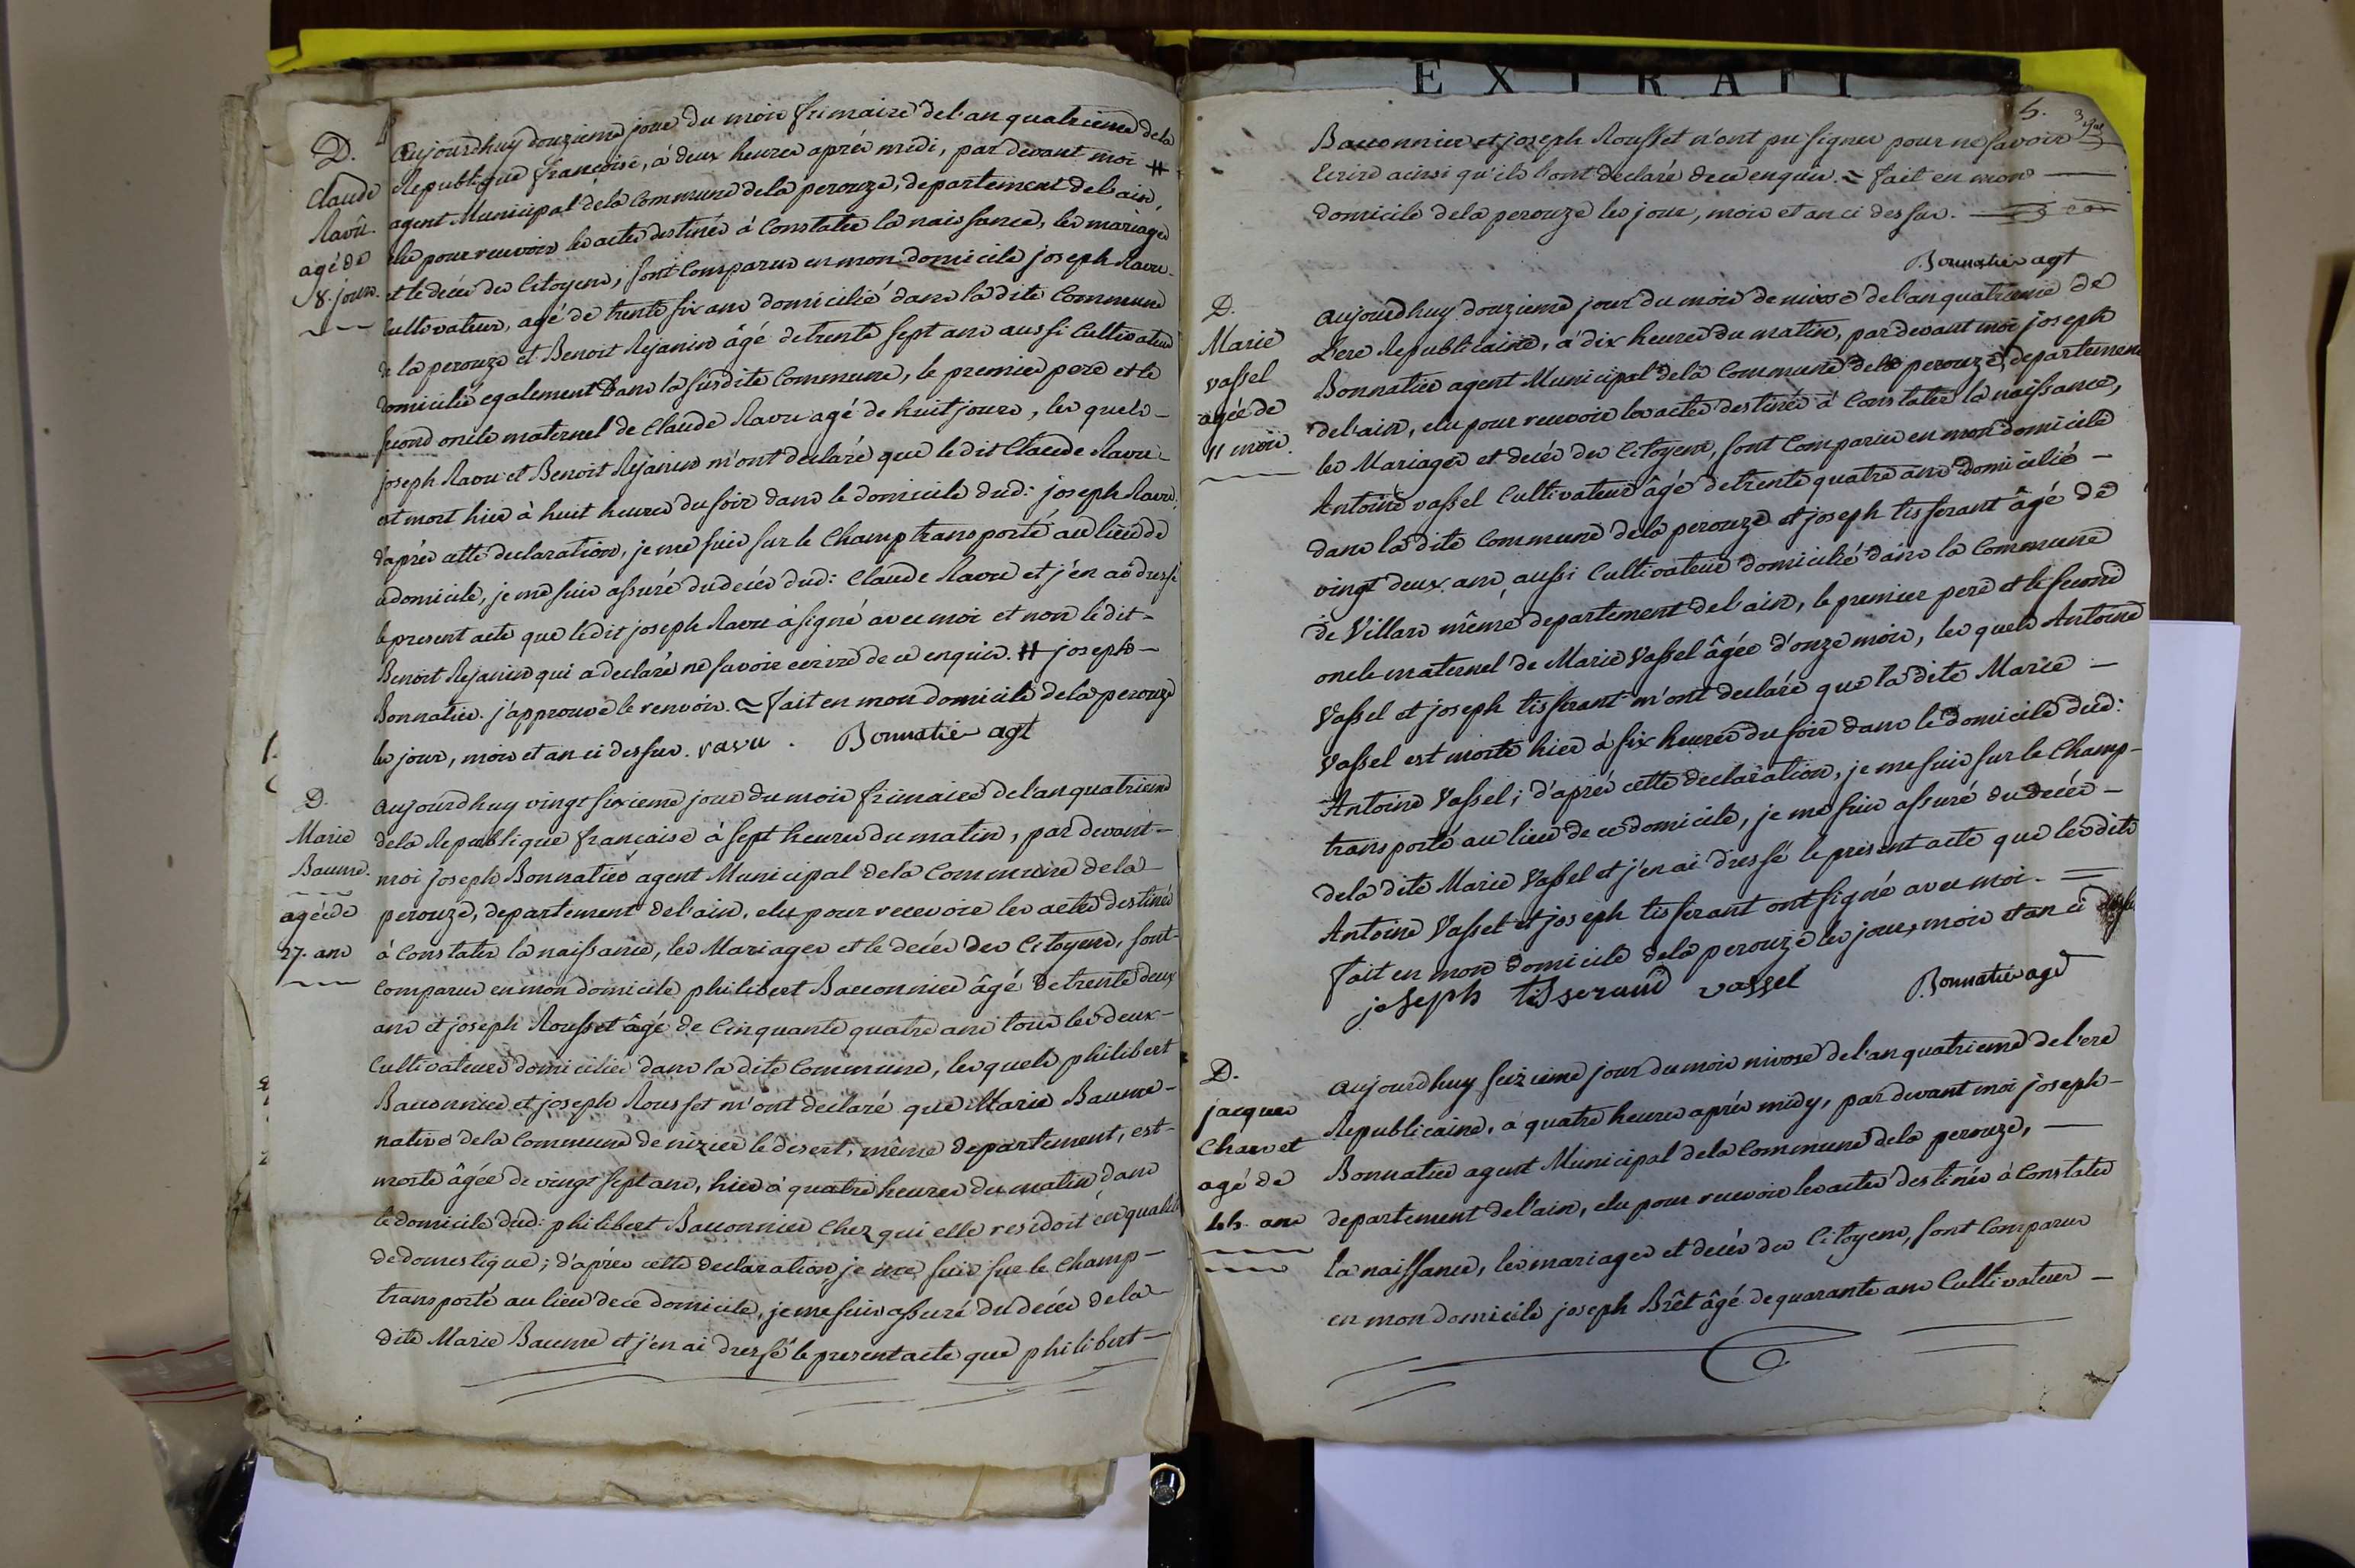 D.
Claude
Ravu.
agé de
8. jours.
Aujourdhuy douzieme jour du mois frimaire de l'an quatrieme de la
Republique francoise, à deux heures aprés midi, par devant moi #
agent Municipal de la Commune de la perouze, departement de l'ain,
elu pour recevoir les actes destinés à Constater la naissance, les mariages
et le decès des Citoyens, sont Comparus en mon domicile joseph Ravu
Cultivateur, agé de trente six ans domicilié dans la dite Commune
de la perouze et Benoit Rejanin âgé de trente sept ans aussi Cultivateur
domicilié egalement dans la susdite Commune, le premier pere et le
second oncle maternel de Claude Ravu agé de huit jours, les quels -
joseph Ravu et Benoit Rejanin m'ont declaré que le dit Claude Ravu
est mort hier à huit heures du soir dans le domicile dud: joseph Ravu,
d'aprés cette declaration, je me suis sur le Champ transporté au lieu de
ce domicile, je me suis assuré du decés dud: Claude Ravu et j'en ai dressé
le present acte que le dit joseph Ravu à signé avec moi et non le dit -
Benoit Rejanin qui a declaré ne savoir ecrire de ce enquis. # joseph -
Bonnatier. j'approuve le renvoi. = fait en mon domicile de la perouze
les jour, mois et an ci dessus. ravu . Bonnatier agt
D.
Marie
Baume.
agée de
27. ans
Aujourdhuy vingt sixieme jour du mois frimaire de l'an quatrieme
de la Republique francaise à sept heures du matin, par devant -
moi joseph Bonnatier agent Municipal de la Commune de la
perouze, departement de l'ain, elu pour recevoir les actes destinés
à Constater la naissance, les Mariages et le decés des Citoyens, sont -
Comparus en mon domicile philibert Baconnier âgé de trente deux
ans et joseph Rousset âgé de Cinquante quatre ans tous les deux -
Cultivateurs domiciliés dans la dite Commune, les quels philibert
Baconnier et joseph Rousset m'ont declaré que Marie Baume -
native de la Commune de nizier le desert, même departement, est -
morte âgée de vingt sept ans, hier à quatre heures du matin dans
le domicile dud: philibert Baconnier Chez qui elle residoit en qualité
de domestique; d'aprés cette declaration, je me suis sur le Champ -
transporté au lieu de ce domicile, je me suis assuré du decés de la
dite Marie Baume et j'en ai dressé le present acte que philibert -
EXTRAIT
5.
Baconnier et joseph Rousset n'ont pu signer pour ne savoir
Ecrire ainsi qu'ils l'ont declaré de ce enquis. = fait en mon
domicile de la perouze les jour, mois et an ci dessus.
Bonnatier agt
D.
Marie
vassel
agée de
11 mois.
Aujourdhuy douzieme jour du mois de nivose de l'an quatrieme de
L'ere Republicaine, à dix heures du matin, par devant moi joseph
Bonnatier agent Municipal de la Commune de la perouze, departement
de l'ain, elu pour recevoir les actes destinés à Constater la naissance,
les Mariages et decés des Citoyens, sont Comparus en mon domicile
Antoine vassel Cultivateur âgé de trente quatre ans domicilié -
dans la dite Commune de la perouze et joseph tisserant âgé de
vingt deux ans, aussi Cultivateur domicilié dans la Commune
de Villars même departement de l'ain, le premier pere et le second
oncle maternel de Marie Vassel âgée d'onze mois, les quels Antoine
Vassel et joseph tisserant m'ont declaré que la dite Marie -
Vassel est morte hier à six heures du soir dans le domicile dud:
Antoine Vassel; d'aprés cette declaration, je me suis sur le Champ -
transporté au lieu de ce domicile, je me suis assuré du decés -
de la dite Marie Vassel et j'en ai dressé le present acte que lesdits
Antoine Vassel et joseph tisserant ont signé avec moi. =
fait en mon domicile de la perouze les jour, mois et an ci dessus
joseph tisserand vassel Bonnatier agt
D.
jacques
Charvet
agé de
45. ans
Aujourdhuy seizieme jour du mois nivose de l'an quatrieme de l'ere
Republicaine, à quatre heures aprés midy, par devant moi joseph -
Bonnatier agent Municipal de la Commune de la perouze,
departement de l'ain, elu pour recevoir les actes destinés à Constater
la naissance, les mariages et decés des Citoyens, sont Comparus
en mon domicile joseph Brêt âgé de quarante ans Cultivateur -